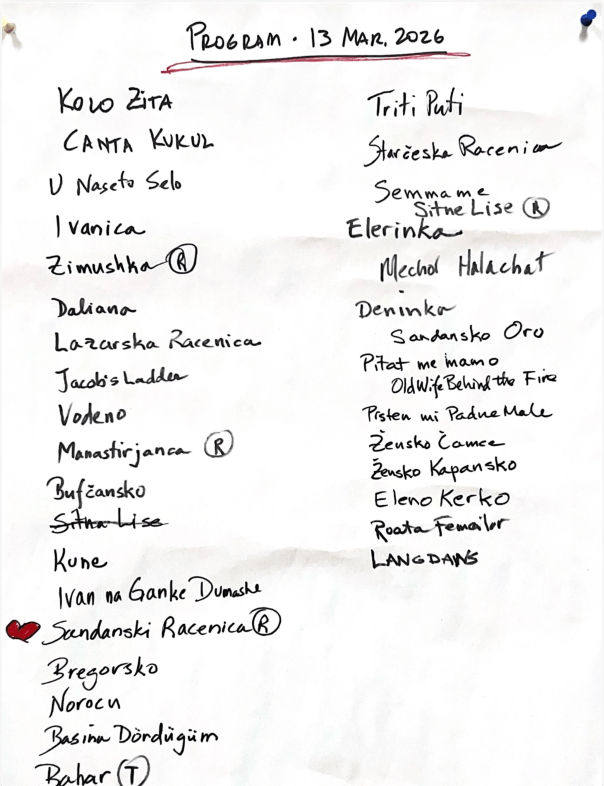 PROGRAM · 13 MAR. 2026
KOLO ZITA
CANTA KUKUL
U Naseto Selo
Ivanica
Zimushka R
Daliana
Lazarska Racenica
Jacob's Ladder
Vodeno
Manastirjanca R
Bufčansko
Sitna Lise
Kune
Ivan na Ganke Dumashe
Sandanski Racenica R
Bregovsko
Norocu
Basina Dördügüm
Bahar T
Triti Puti
Starčeska Racenica
Semmame
Sitne Lise R
Elerinka
Mechol Halachat
Deninka
Sandansko Oro
Pitat me mamo
Old Wife Behind the Fire
Prsten mi Padna Male
Žensko Čamce
Žensko Kapansko
Eleno Kerko
Roata Femeilor
LANGDANS